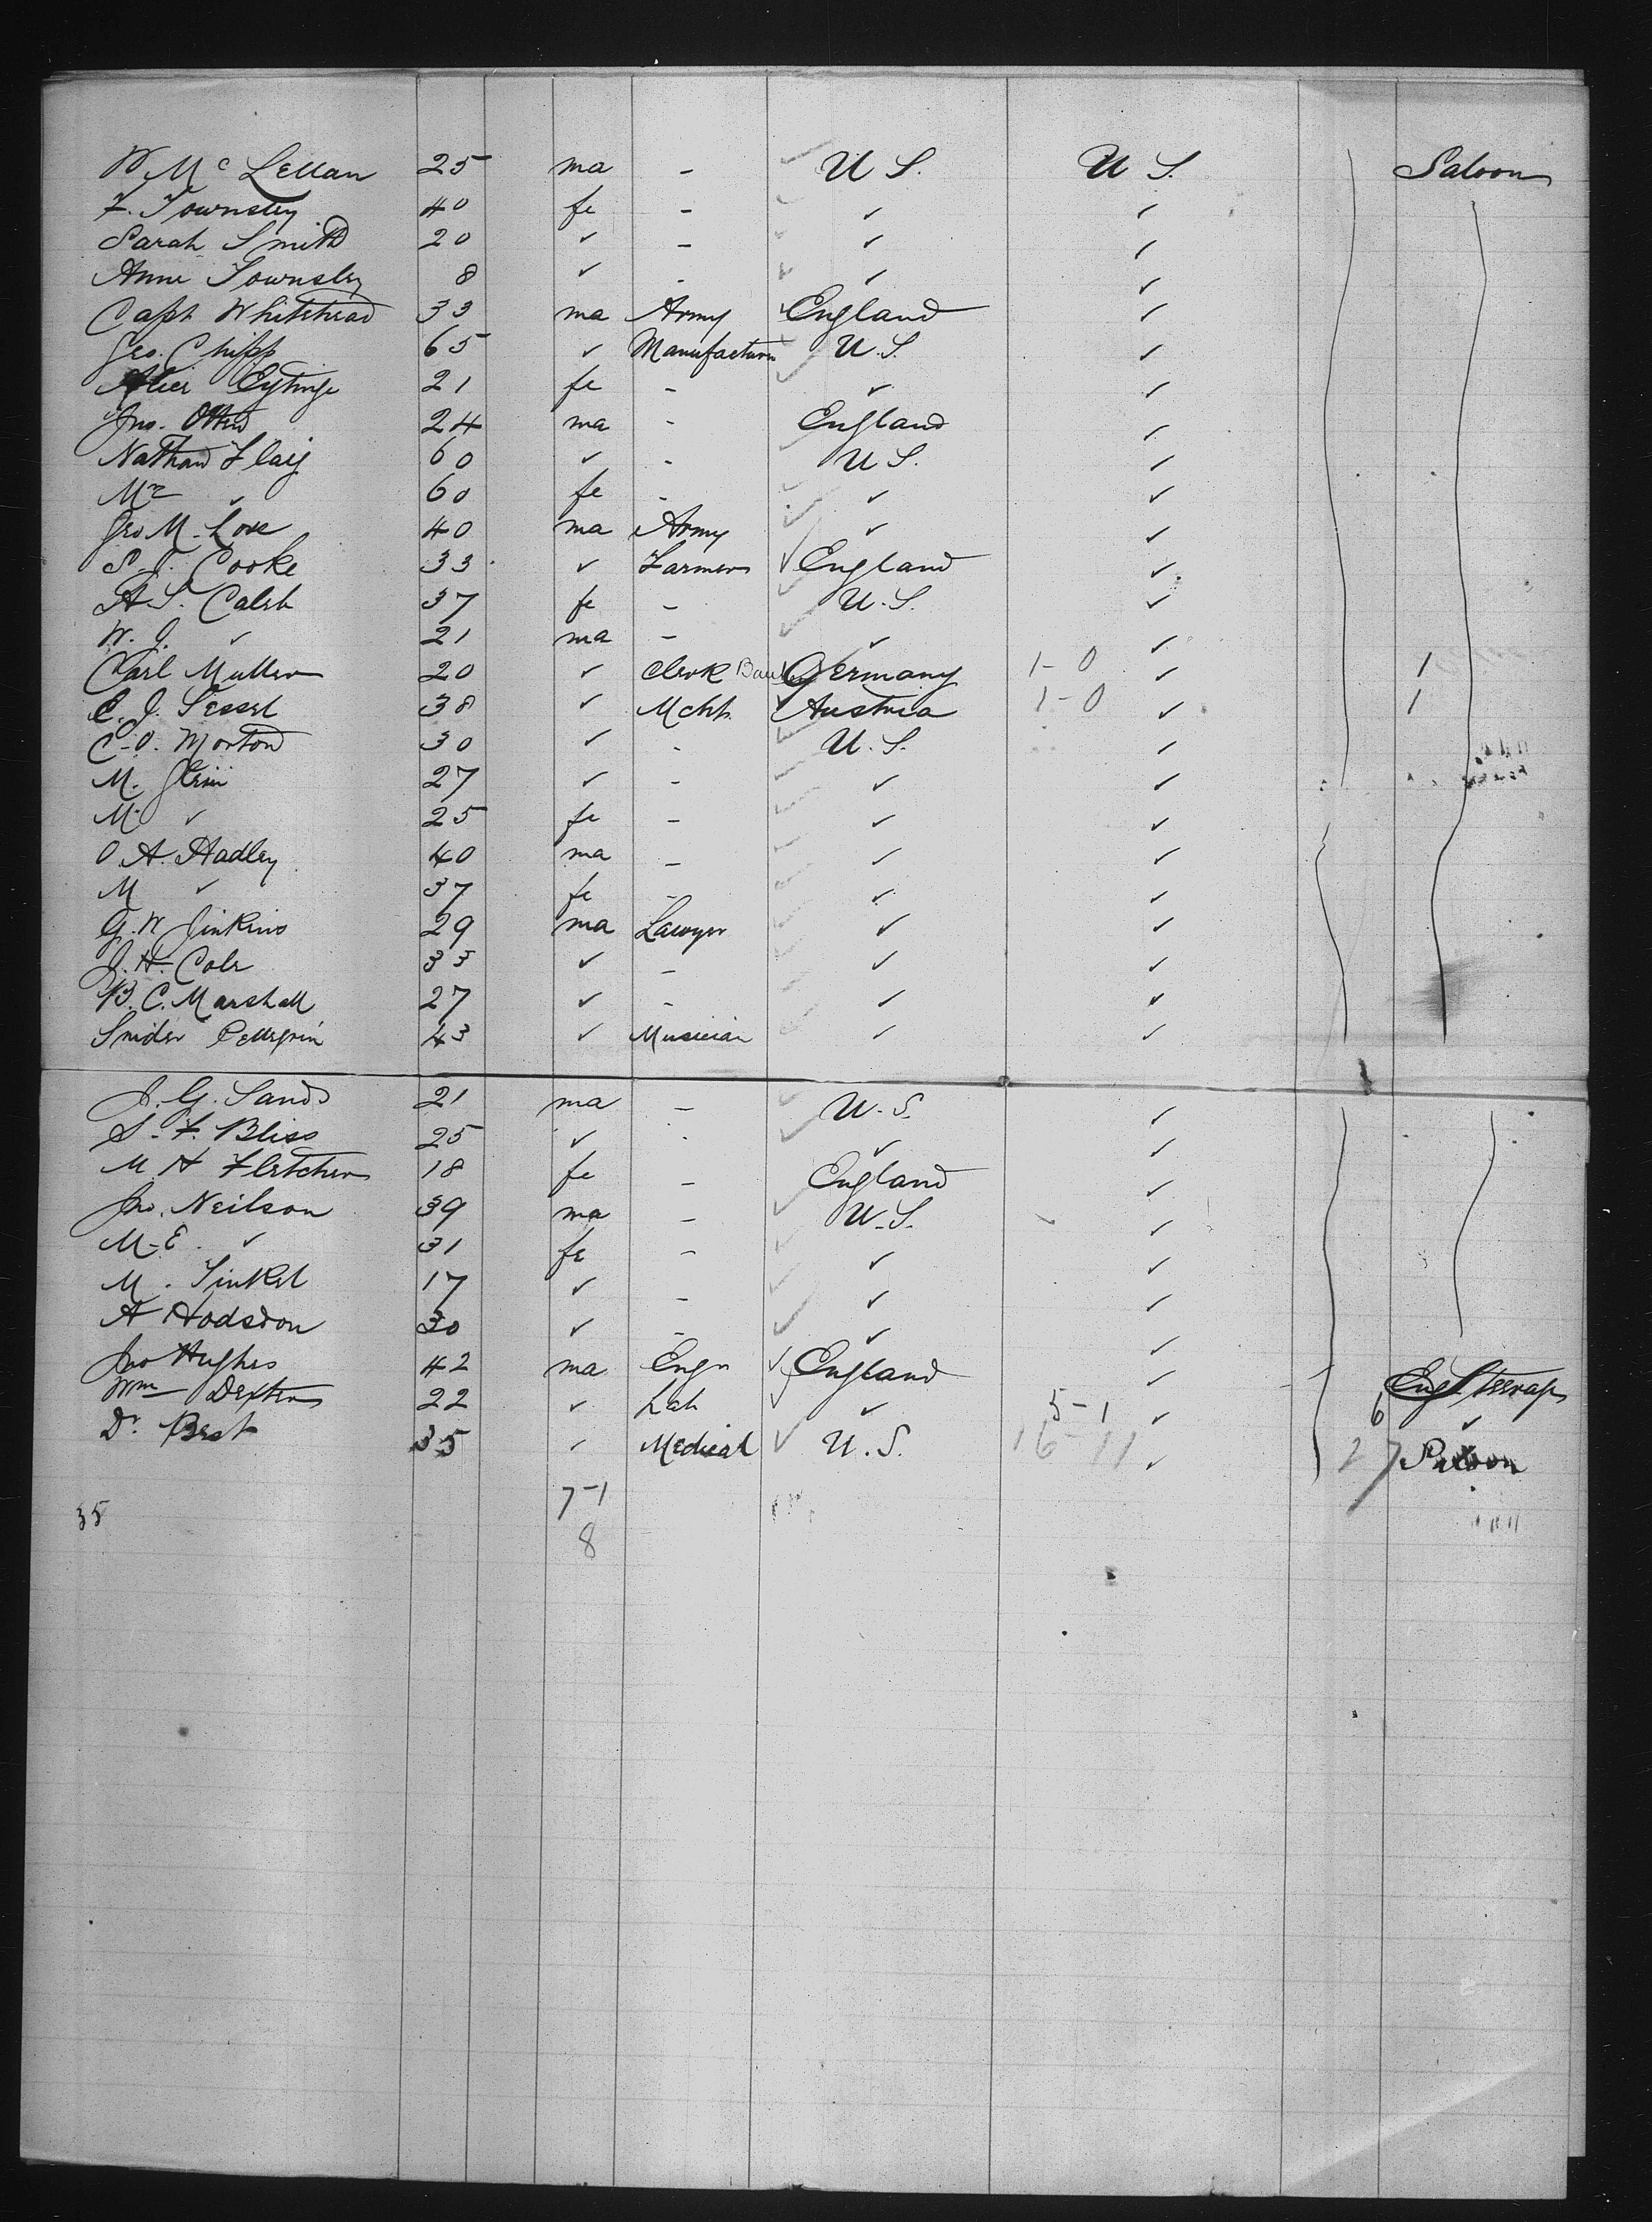 W Mc Lellan 25 ma - U S. U S. Saloon
F. Townsley 40 fe - ✓ ✓
Sarah Smith 20 ✓ - ✓ ✓
Anne Townsley 8 ✓ - ✓ ✓
Capt Whitehead 33 ma Army England ✓
Geo. Chipp 65 ✓ Manufacturer U.S. ✓
Alice Eytinge 21 fe - ✓ ✓
Jno. 24 ma - England ✓
Nathan Flaig 60 ✓ - U S. ✓
Mrs ✓ 60 fe - ✓ ✓
Geo M. Love 40 ma Army ✓ ✓
S. J. Cooke 33 ✓ Farmer England ✓
A S. Caleb 37 fe - U.S. ✓
W. J. ✓ 21 ma - ✓ ✓
Carl Muller 20 ✓ Clerk Germany 1-0 ✓ 1
E. J. Sessel 38 ✓ Mcht. Austria 1-0 ✓ 1
C. O. Morton 30 ✓ - U.S. ✓
M. 27 ✓ - ✓ ✓
M. ✓ 25 fe - ✓ ✓
O. A. Hadley 40 ma - ✓ ✓
M ✓ 37 fe - ✓ ✓
G. W Jinkins 29 ma Lawyer ✓ ✓
J. H. Cole 33 ✓ - ✓ ✓
B. C. Marshall 27 ✓ - ✓ ✓
Snider Pellegrin 43 ✓ Musician ✓ ✓
J. G. Sands 21 ma - U.S. ✓
S. F. Bliss 25 ✓ - ✓ ✓
M H Fletcher 18 fe - England ✓
Jno. Neilson 39 ma - U.S. ✓
M-E. ✓ 31 fe - ✓ ✓
M. Tinkel 17 ✓ - ✓ ✓
A Hodsdon 30 ✓ - ✓ ✓
Jno Hughes 42 ma Engr England ✓ Eng Steerage
Wm Dexter 22 ✓ Lab ✓ 5-1 ✓ 6 ✓
Dr. Best 35 ✓ Medical U.S. 16-11 ✓ 27 Saloon
35 7-1
8